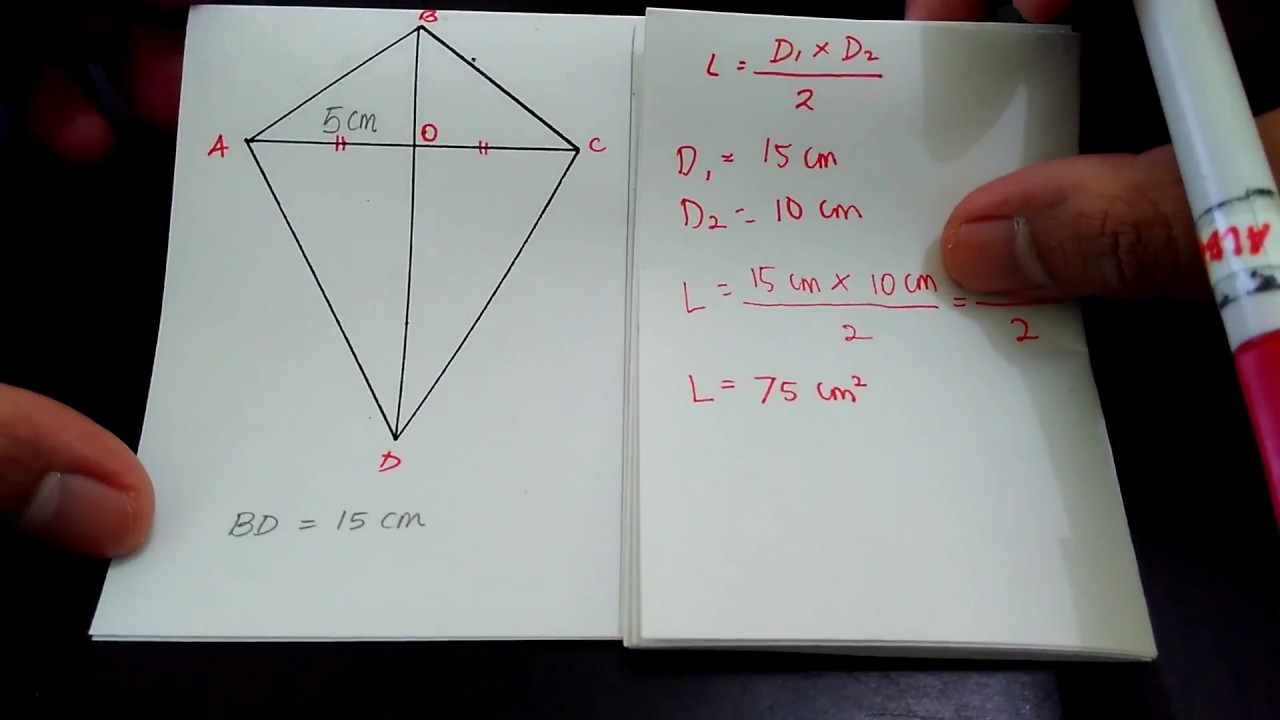 B
5 cm
A
O
C
D
BD = 15 cm
L = D₁ × D₂ / 2
D₁ = 15 cm
D₂ = 10 cm
L = 15 cm × 10 cm / 2 = / 2
L = 75 cm²